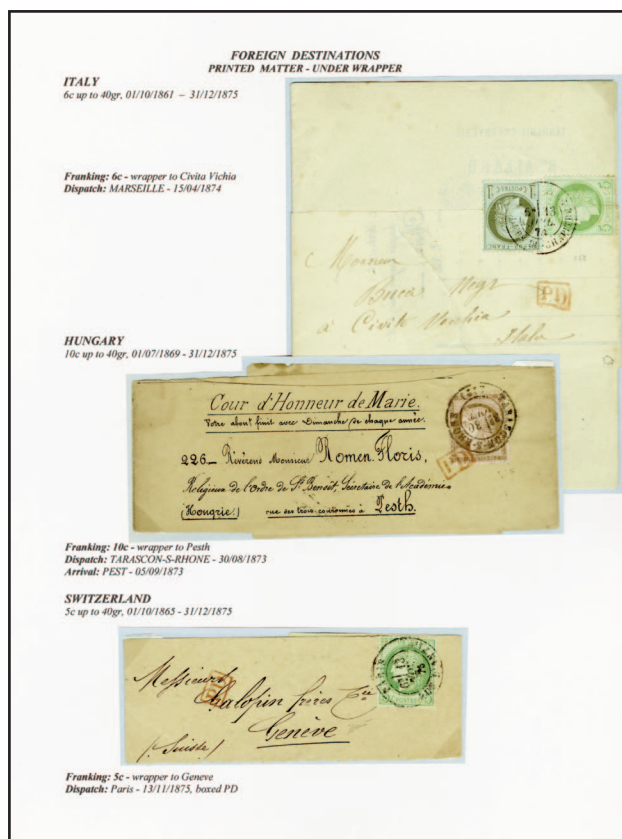 FOREIGN DESTINATIONS
PRINTED MATTER - UNDER WRAPPER
ITALY
6c up to 40gr, 01/10/1861 – 31/12/1875
Franking: 6c - wrapper to Civita Vichia
Dispatch: MARSEILLE - 15/04/1874
Monsieur
à Civita Vecchia
Italie
PD
HUNGARY
10c up to 40gr, 01/07/1869 - 31/12/1875
Cour d'Honneur de Marie.
Votre abont finit avec Dimanche de chaque année.
226_ Révérend Monsieur Romen Floris,
Religieux de l'Ordre de St Benoit, Secrétaire de l'Académie
(Hongrie) rue des trois couronnes à Pesth.
Franking: 10c - wrapper to Pesth
Dispatch: TARASCON-S-RHONE - 30/08/1873
Arrival: PEST - 05/09/1873
SWITZERLAND
5c up to 40gr, 01/10/1865 - 31/12/1875
Messieurs
Chalopin frères Cie
Genève
(Suisse)
Franking: 5c - wrapper to Geneve
Dispatch: Paris - 13/11/1875, boxed PD